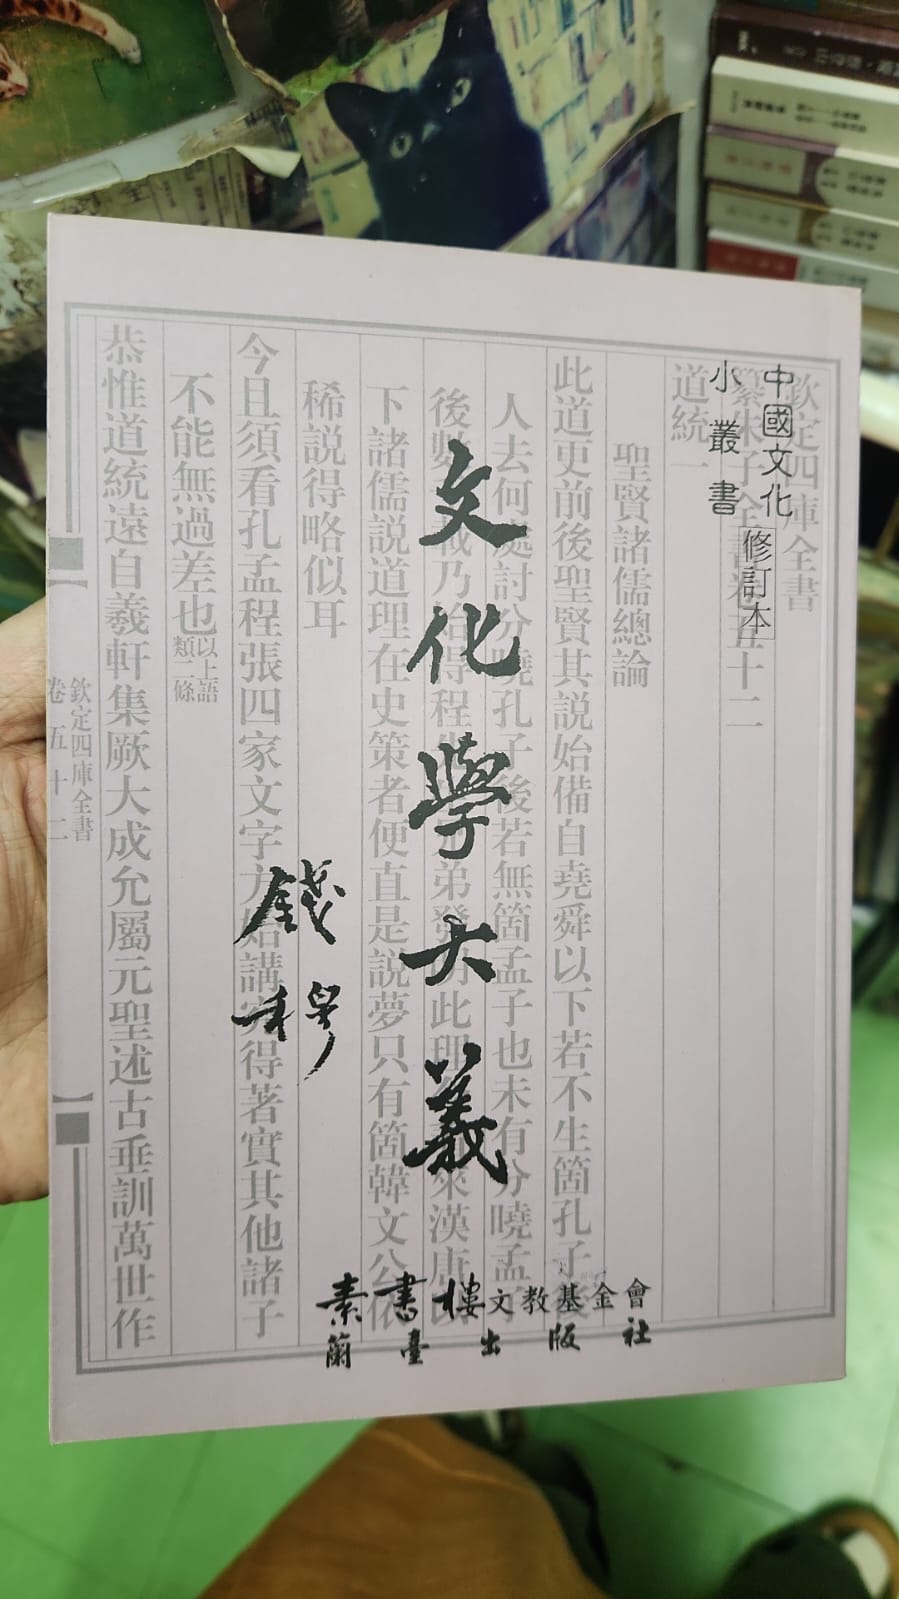 中國文化
小叢書
修訂本
文化學大義
錢穆
素書樓文教基金會
蘭臺出版社
欽定四庫全書
纂朱子全書卷五十二
道統一
聖賢諸儒總論
此道更前後聖賢其說始備自堯舜以下若不生箇孔子後
人去何處討分曉孔子後若無箇孟子也未有分曉孟子
後數載乃始得程先生兄弟發明此理來漢唐
下諸儒說道理在史策者便直是說夢只有箇韓文公依
稀說得略似耳
今且須看孔孟程張四家文字方始講究得著實其他諸子
不能無過差也
以上語
類二條
恭惟道統遠自羲軒集厥大成允屬元聖述古垂訓萬世作
欽定四庫全書
卷五十二